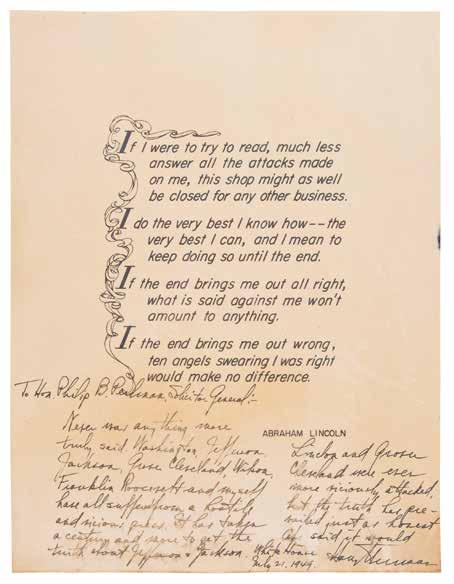 If I were to try to read, much less
answer all the attacks made
on me, this shop might as well
be closed for any other business.
I do the very best I know how--the
very best I can, and I mean to
keep doing so until the end.
If the end brings me out all right,
what is said against me won't
amount to anything.
If the end brings me out wrong,
ten angels swearing I was right
would make no difference.
ABRAHAM LINCOLN
To Hon. Philip B. Perlman, Solicitor General:-
Never was anything more
truly said. Washington, Jefferson
Jackson, Grover Cleveland Wilson,
Franklin Roosevelt and myself
have all suffered from a hostile
and vicious press. It has taken
a century and more to get the
truth about Jefferson & Jackson.
Lincoln and Grover
Cleveland were even
more viciously attacked.
but the truth has pre-
vailed just as honest
Abe said it would
White House
July 21, 1949. Harry Truman